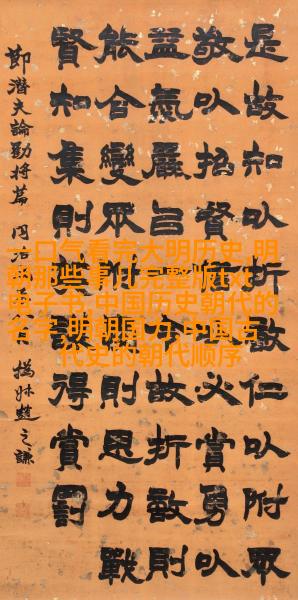 是故知㠯折敵仁㠯附眾
敬㠯招賢㠯必賞勇㠯
益氣嚴㠯令故折敵則
能合變眾思力戰
賢知集則英謀得賞罰
節潛夫論勸將篇 同治 撝叔趙之謙
一口气看完大明历史,明
朝那些事儿完整版txt
电子书,中国历史朝代的
名字,明朝国力,中国古
代史的朝代顺序